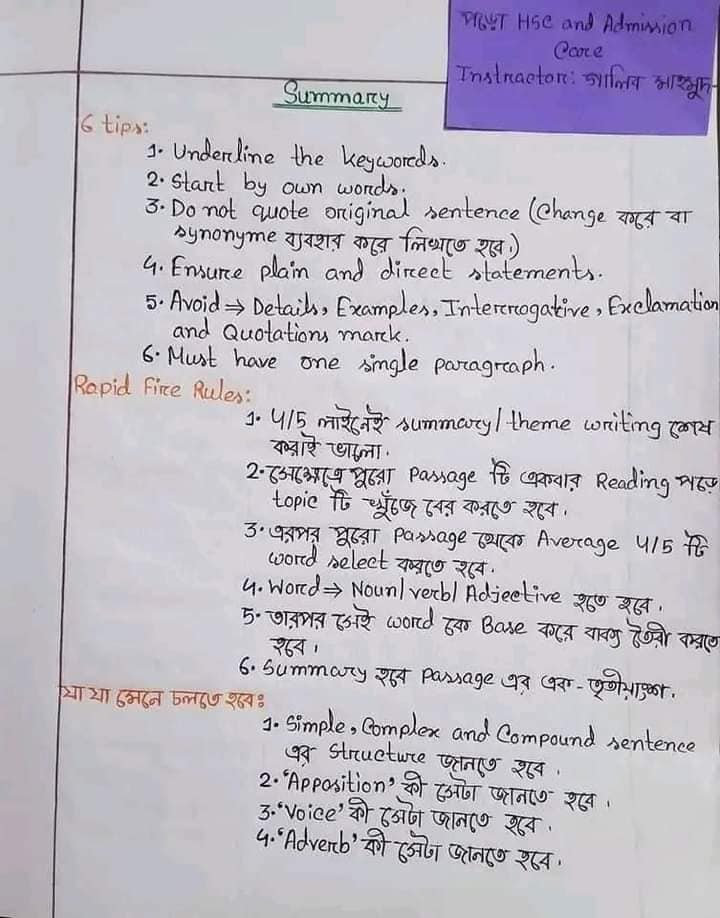 পড়ো HSC and Admission
Care
Instractor: গালিব মাহমুদ
Summary
6 tips:
1. Underline the keywords.
2. Start by own words.
3. Do not quote original sentence (Change করে বা
synonyme ব্যবহার করে লিখতে হবে।)
4. Ensure plain and direct statements.
5. Avoid ⇒ Details, Examples, Interrogative, Exclamation
and Quotations mark.
6. Must have one single paragraph.
Rapid Fire Rules:
1. 4/5 লাইনেই summary/theme writing শেষ
করাই ভালো।
2. সেক্ষেত্রে পুরো Passage টি একবার Reading পড়ে
topic টি খুঁজে বের করতে হবে।
3. এরপর পুরো Passage থেকে Average 4/5 টি
word select করতে হবে।
4. Word ⇒ Noun/verb/Adjective হতে হবে।
5. তারপর সেই word কে Base করে বাক্য তৈরী করতে
হবে।
6. Summary হবে Passage এর এক-তৃতীয়াংশ।
যা যা মেনে চলতে হবেঃ
1. Simple, Complex and Compound sentence
এর Structure জানতে হবে।
2. 'Apposition' কী সেটা জানতে হবে।
3. 'Voice' কী সেটা জানতে হবে।
4. 'Adverb' কী সেটা জানতে হবে।